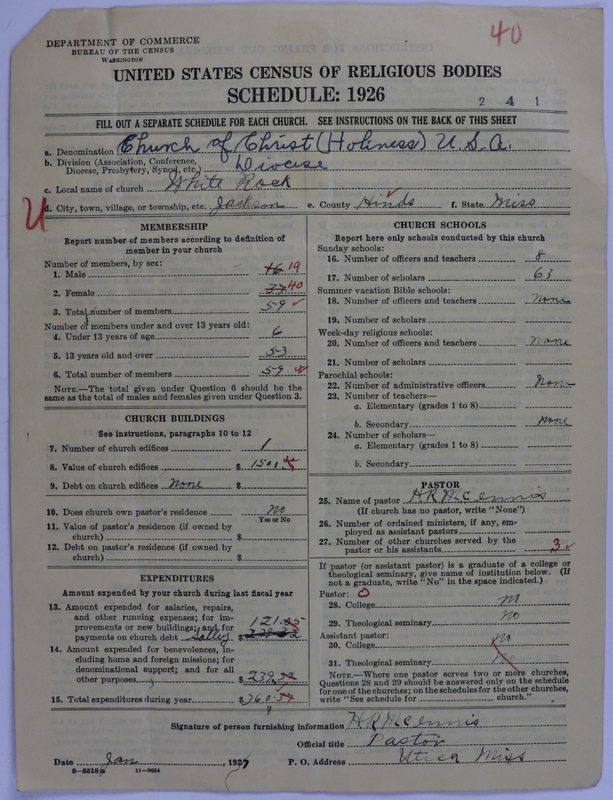 40
DEPARTMENT OF COMMERCE
BUREAU OF THE CENSUS
WASHINGTON
UNITED STATES CENSUS OF RELIGIOUS BODIES
SCHEDULE: 1926
2 4 1
FILL OUT A SEPARATE SCHEDULE FOR EACH CHURCH. SEE INSTRUCTIONS ON THE BACK OF THIS SHEET
a. Denomination Church of Christ (Holiness) U.S.A.
b. Division (Association, Conference, Diocese, Presbytery, Synod, etc.) Diocese
c. Local name of church White Rock
U
d. City, town, village, or township, etc. Jackson e. County Hinds f. State Miss
MEMBERSHIP
Report number of members according to definition of
member in your church
Number of members, by sex:
1. Male 16 19
2. Female 37 40
3. Total number of members 59
Number of members under and over 13 years old:
4. Under 13 years of age 6
5. 13 years old and over 53
6. Total number of members 59
NOTE.—The total given under Question 6 should be
same as the total of males and females given under Question 3.
CHURCH BUILDINGS
See instructions, paragraphs 10 to 12
7. Number of church edifices 1
8. Value of church edifices $ 1501
9. Debt on church edifices None $
10. Does church own pastor's residence No
Yes or No
11. Value of pastor's residence (if owned by
church) $
12. Debt on pastor's residence (if owned by
church) $
EXPENDITURES
Amount expended by your church during last fiscal year
13. Amount expended for salaries, repairs,
and other running expenses; for im-
provements or new buildings; and for 121.05
payments on church debt $
14. Amount expended for benevolences, in-
cluding home and foreign missions; for
denominational support; and for all
other purposes $ 239.52
15. Total expenditures during year $ 360.57
CHURCH SCHOOLS
Report here only schools conducted by this church
Sunday schools:
16. Number of officers and teachers 8
17. Number of scholars 63
Summer vacation Bible schools:
18. Number of officers and teachers None
19. Number of scholars
Week-day religious schools:
20. Number of officers and teachers None
21. Number of scholars
Parochial schools:
22. Number of administrative officers None
23. Number of teachers—
a. Elementary (grades 1 to 8)
b. Secondary None
24. Number of scholars—
a. Elementary (grades 1 to 8)
b. Secondary
PASTOR
25. Name of pastor H R McEnnis
(If church has no pastor, write "None")
26. Number of ordained ministers, if any, em-
ployed as assistant pastors
27. Number of other churches served by the
pastor or his assistants 3
If pastor (or assistant pastor) is a graduate of a college or
theological seminary, give name of institution below. (If
not a graduate, write "No" in the space indicated.)
Pastor: O
28. College no
29. Theological seminary No
Assistant pastor:
30. College No
31. Theological seminary No
NOTE.—Where one pastor serves two or more churches,
Questions 28 and 29 should be answered only on the schedule
for one of the churches; on the schedules for the other churches,
write "See schedule for church."
Signature of person furnishing information H R McEnnis
Official title Pastor
Date Jan, 1927 P. O. Address Utica Miss
8—5518a 11—9054